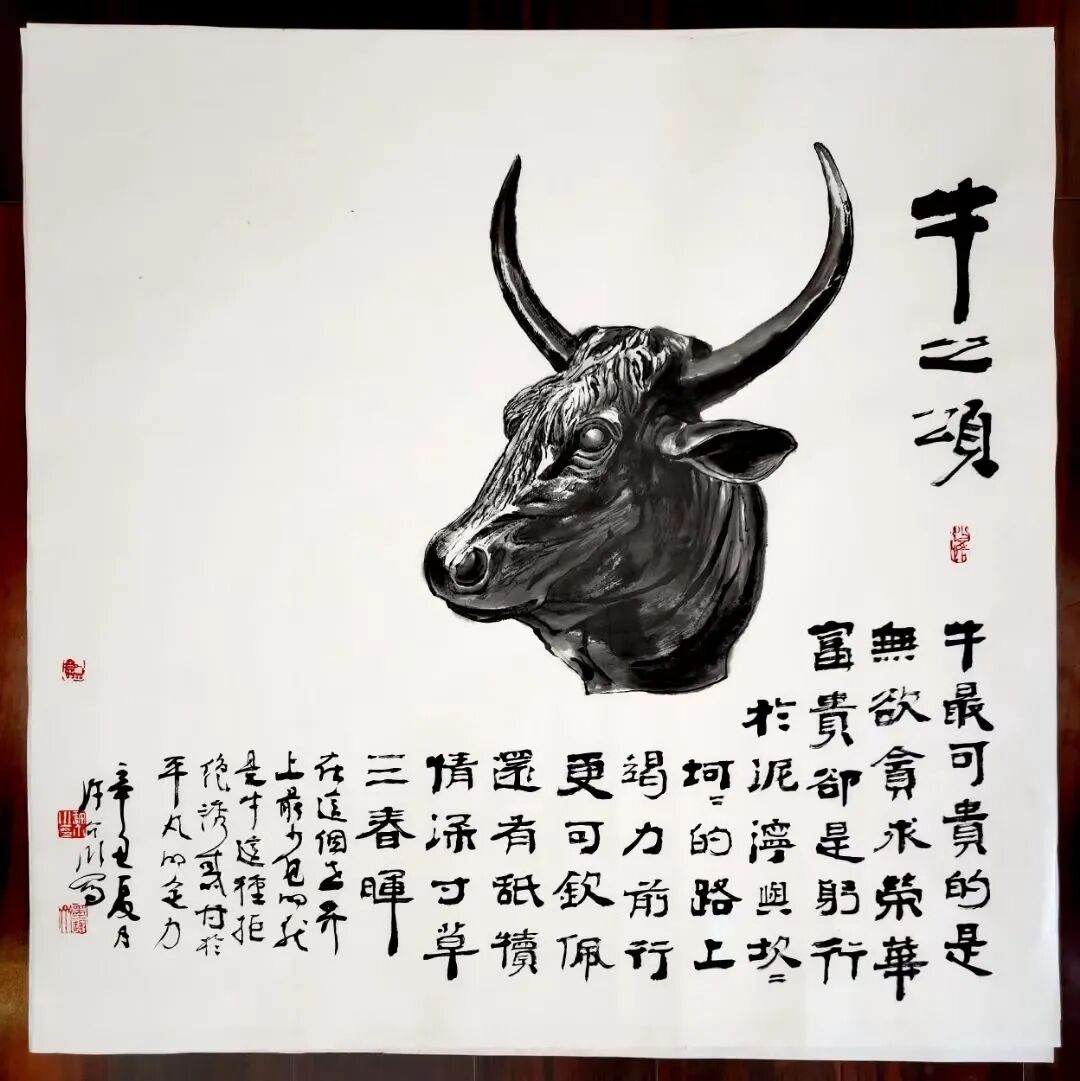 牛之頌
牛最可貴的是
無欲貪求榮華
富貴卻是躬行
於泥濘與坎〻
坷〻的路上
竭力前行
更可欽佩
還有舐犢
情深寸草
三春暉
在這個世界
上最少見的就
是牛這種拒
絕誘惑付於
平凡的定力
辛丑夏月